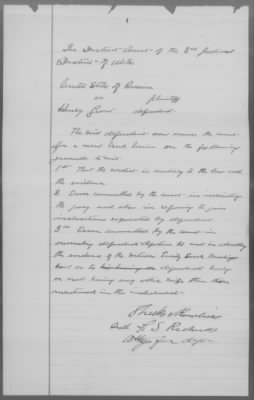 In District Court of the 3rd Judicial
District of Utah
United States of America
vs plaintiff
Henry defendant
The said defendant now moves the court
for a new trial herein on the following
grounds to wit:
1st That the verdict is contrary to the law and
the evidence
2 Error committed by the court in instructing
the jury and also in refusing to give
instructions requested by defendant
3rd Error committed by the court in
overruling defendants objections to and in admitting
the evidence of the witness Emily
as to defendant having
or not having any other wife than those
mentioned in the indictment
Sheeks & Rawlins
and F. S. Richards
Attys for deft